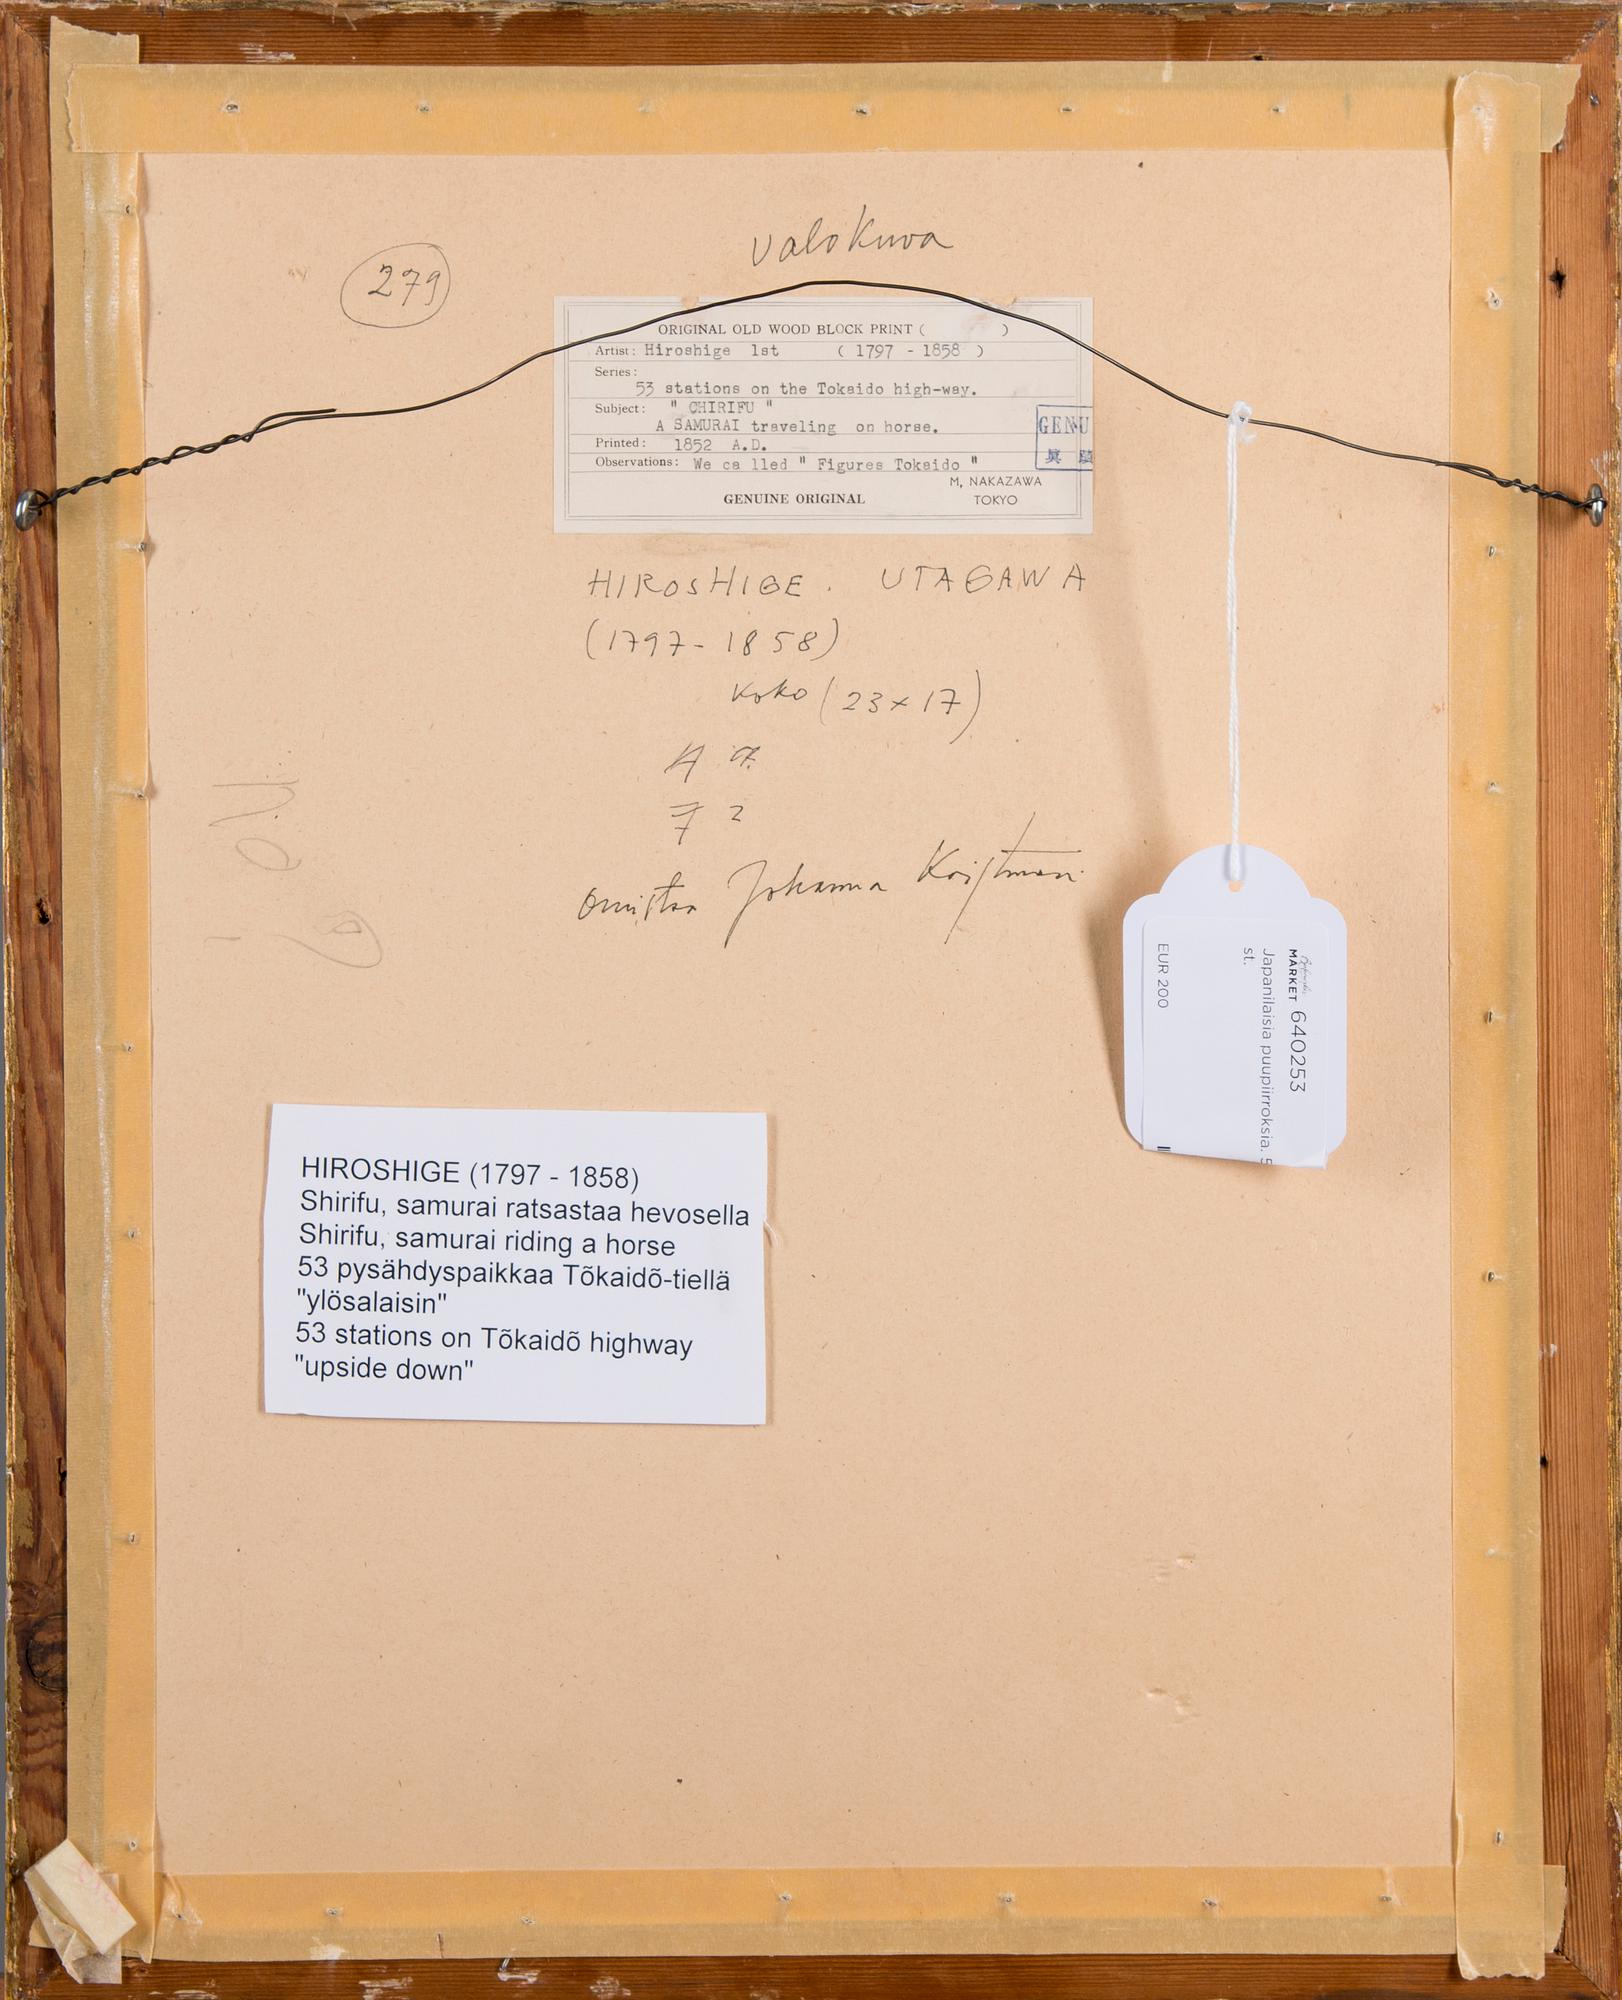 valokuva
279
ORIGINAL OLD WOOD BLOCK PRINT ( )
Artist: Hiroshige 1st ( 1797 - 1858 )
Series:
53 stations on the Tokaido high-way.
Subject: " CHIRIFU "
A SAMURAI traveling on horse.
Printed: 1852 A.D.
Observations: We ca lled " Figures Tokaido "
M, NAKAZAWA
GENUINE ORIGINAL TOKYO
GENU
眞
HIROSHIGE. UTAGAWA
(1797-1858)
Koko (23x17)
omistaa Johanna
MARKET 640253
Japanilaisia puupiirroksia. 5
st.
EUR 200
HIROSHIGE (1797 - 1858)
Shirifu, samurai ratsastaa hevosella
Shirifu, samurai riding a horse
53 pysähdyspaikkaa Tõkaidõ-tiellä
"ylösalaisin"
53 stations on Tõkaidõ highway
"upside down"